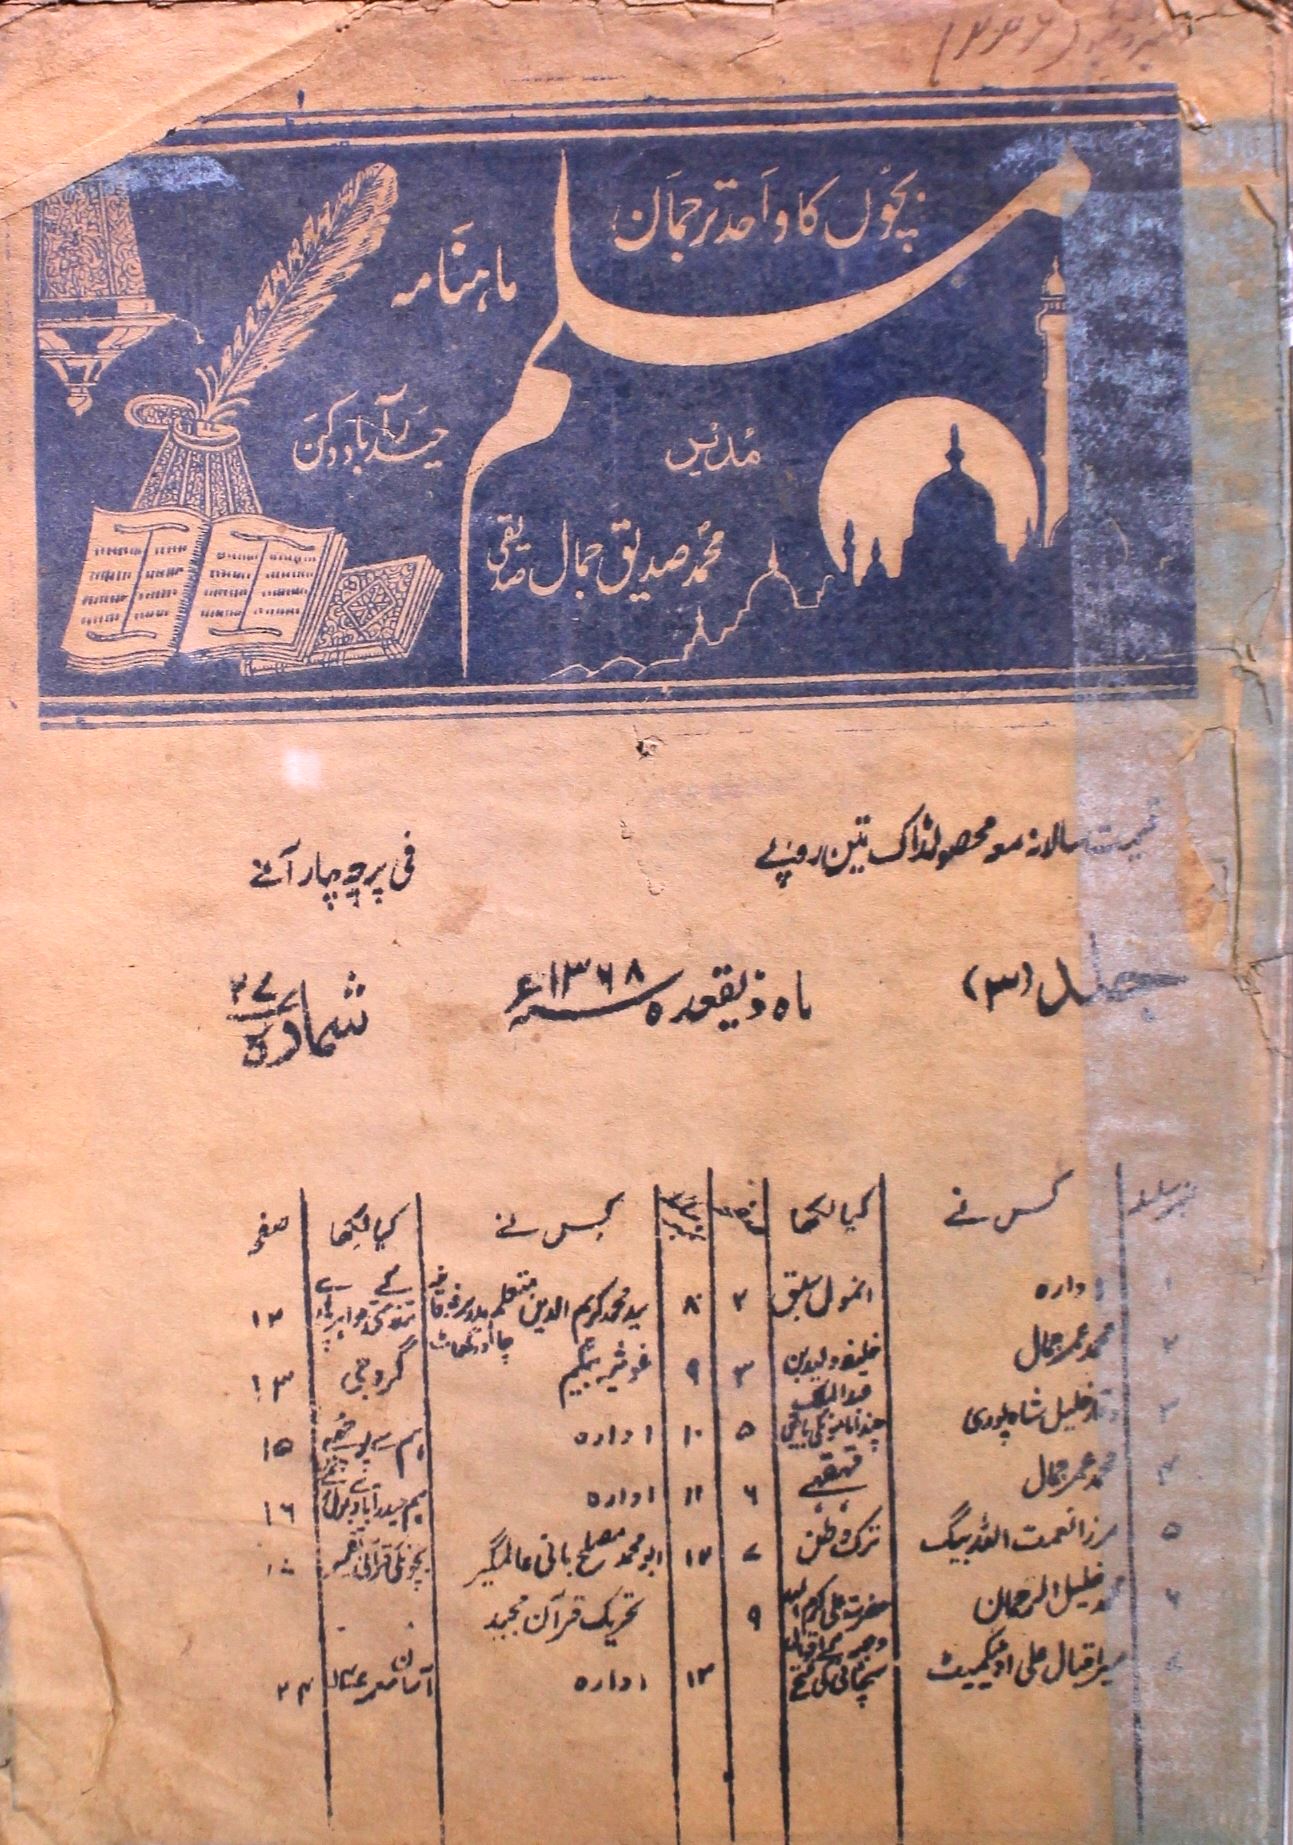 بچّوں کا واحد ترجمان
ماہنامہ
مسلم
حیدرآباد دکن
مُدیر
محمد صدیق جمال صدیقی
قیمت سالانہ مع محصولڈاک تین روپے
فی پرچہ چار آنے
جلد (۳)
ماہ ذیقعدہ سنہ ۱۳۶۸ء
شمارہ
نمبر سلسلہ کس نے کیا لکھا صفحہ
۱ ادارہ انمول سبق ۲
۲ محمد عمر جمال خلیفہ ولید بن عبدالملک ۳
۳ خلیل شاہ پوری چندا ماموں کی باتیں ۵
۴ محمد عمر جمال قہقہے ۶
۵ مرزا نعمت اللہ بیگ ترک وطن ۷
۶ محمد خلیل الرحمان حضرت علی کرم اللہ وجہہ کے اقوال ۹
۷ میر اقبال علی اڈیکمیٹ سچائی کی فتح
کس نے کیا لکھا صفحہ
۸ سید محمد کریم الدین متعلم مدرسہ چادرگھاٹ ۱۲
۹ غوثیہ بیگم گروجی ۱۳
۱۰ ادارہ ہم سے پوچھئے ۱۵
۱۱ ادارہ ہم حیدرآباد ۱۶
۱۲ ابو محمد مصلح بانی عالمگیر تحریک قرآن مجید بچوں کی قرآنی تفسیر
۱۳ ادارہ آسان معمہ ۲۴